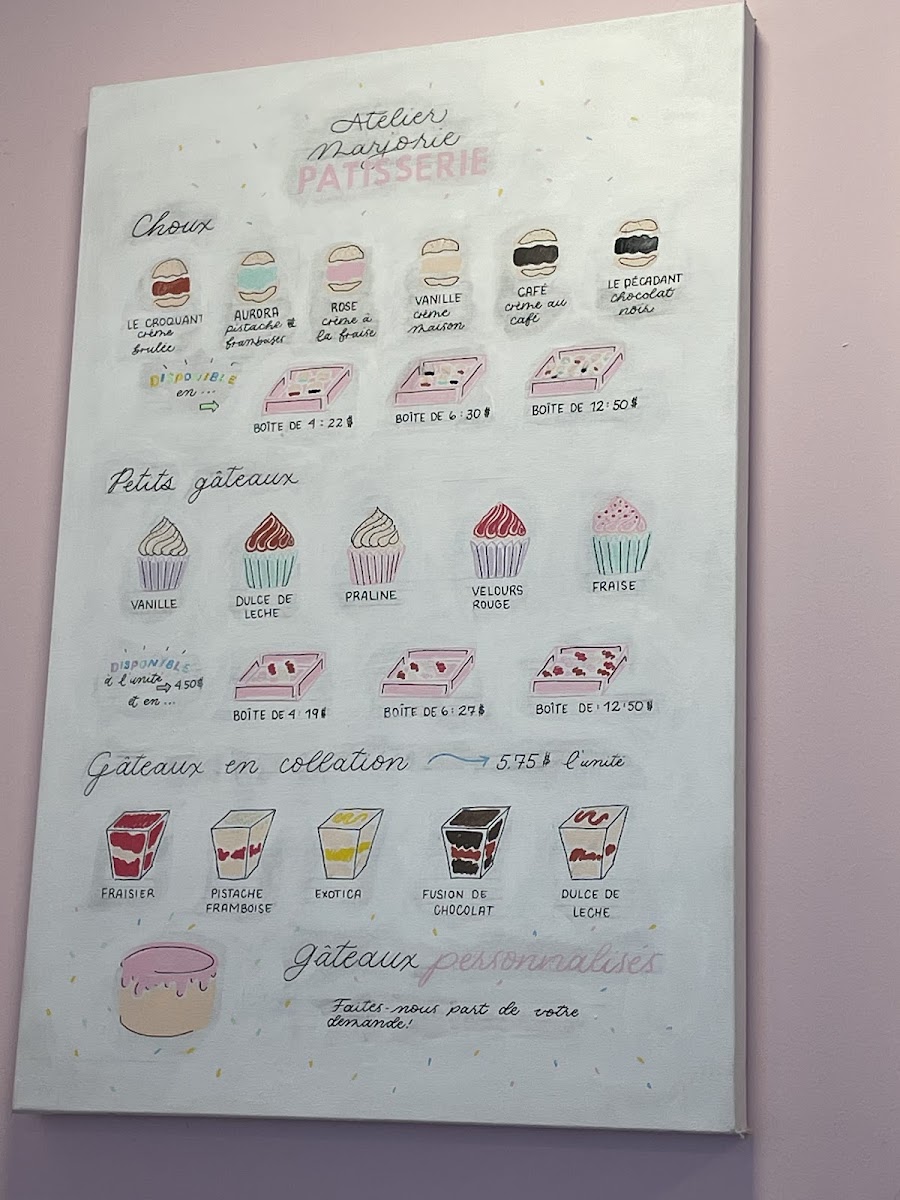 Atelier
Marjorie
PATISSERIE
Choux
LE CROQUANT
crème
brulée
AURORA
pistache &
framboises
ROSE
crème à
la fraise
VANILLE
crème
maison
CAFÉ
crème au
café
LE DÉCADANT
chocolat
noir
DISPONIBLE
en ...
BOÎTE DE 4 : 22 $
BOÎTE DE 6 : 30 $
BOÎTE DE 12 : 50 $
Petits gâteaux
VANILLE
DULCE DE
LECHE
PRALINE
VELOURS
ROUGE
FRAISE
DISPONIBLE
à l'unité
4.50$
et en ...
BOÎTE DE 4 : 19 $
BOÎTE DE 6 : 27 $
BOÎTE DE : 12 : 50 $
Gâteaux en collation 5.75 $ l'unité
FRAISIER
PISTACHE
FRAMBOISE
EXOTICA
FUSION DE
CHOCOLAT
DULCE DE
LECHE
gâteaux personnalisés
Faites-nous part de votre
demande!